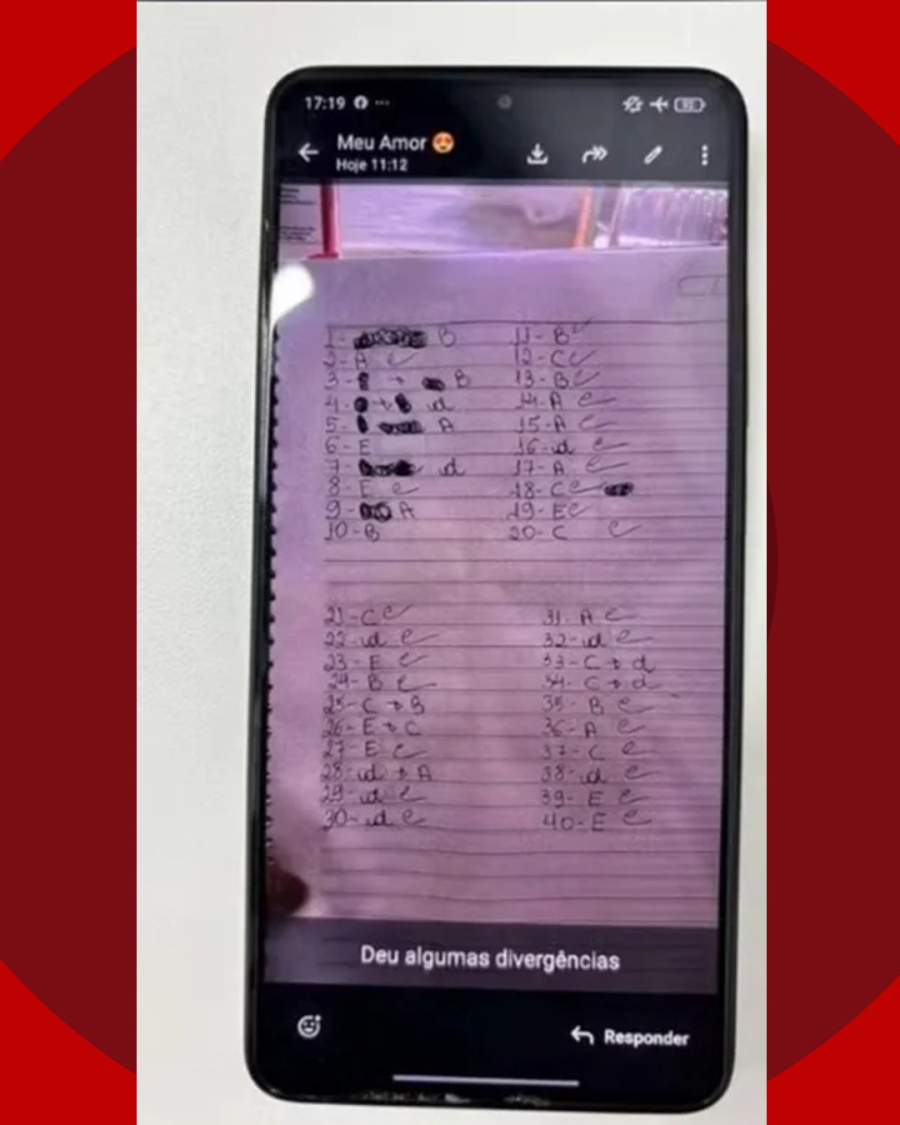 17:19
Meu Amor 😍
Hoje 11:12
1- B
2- A
3- B
4- d
5- A
6- E
7- d
8- E
9- A
10- B
11- B
12- C
13- B
14- A
15- A
16- d
17- A
18- C
19- E
20- C
21- C
22- d
23- E
24- B
25- C → B
26- E → C
27- E
28- d → A
29- d
30- d
31- A
32- d
33- C → d
34- C → d
35- B
36- A
37- C
38- d
39- E
40- E
Deu algumas divergências
Responder